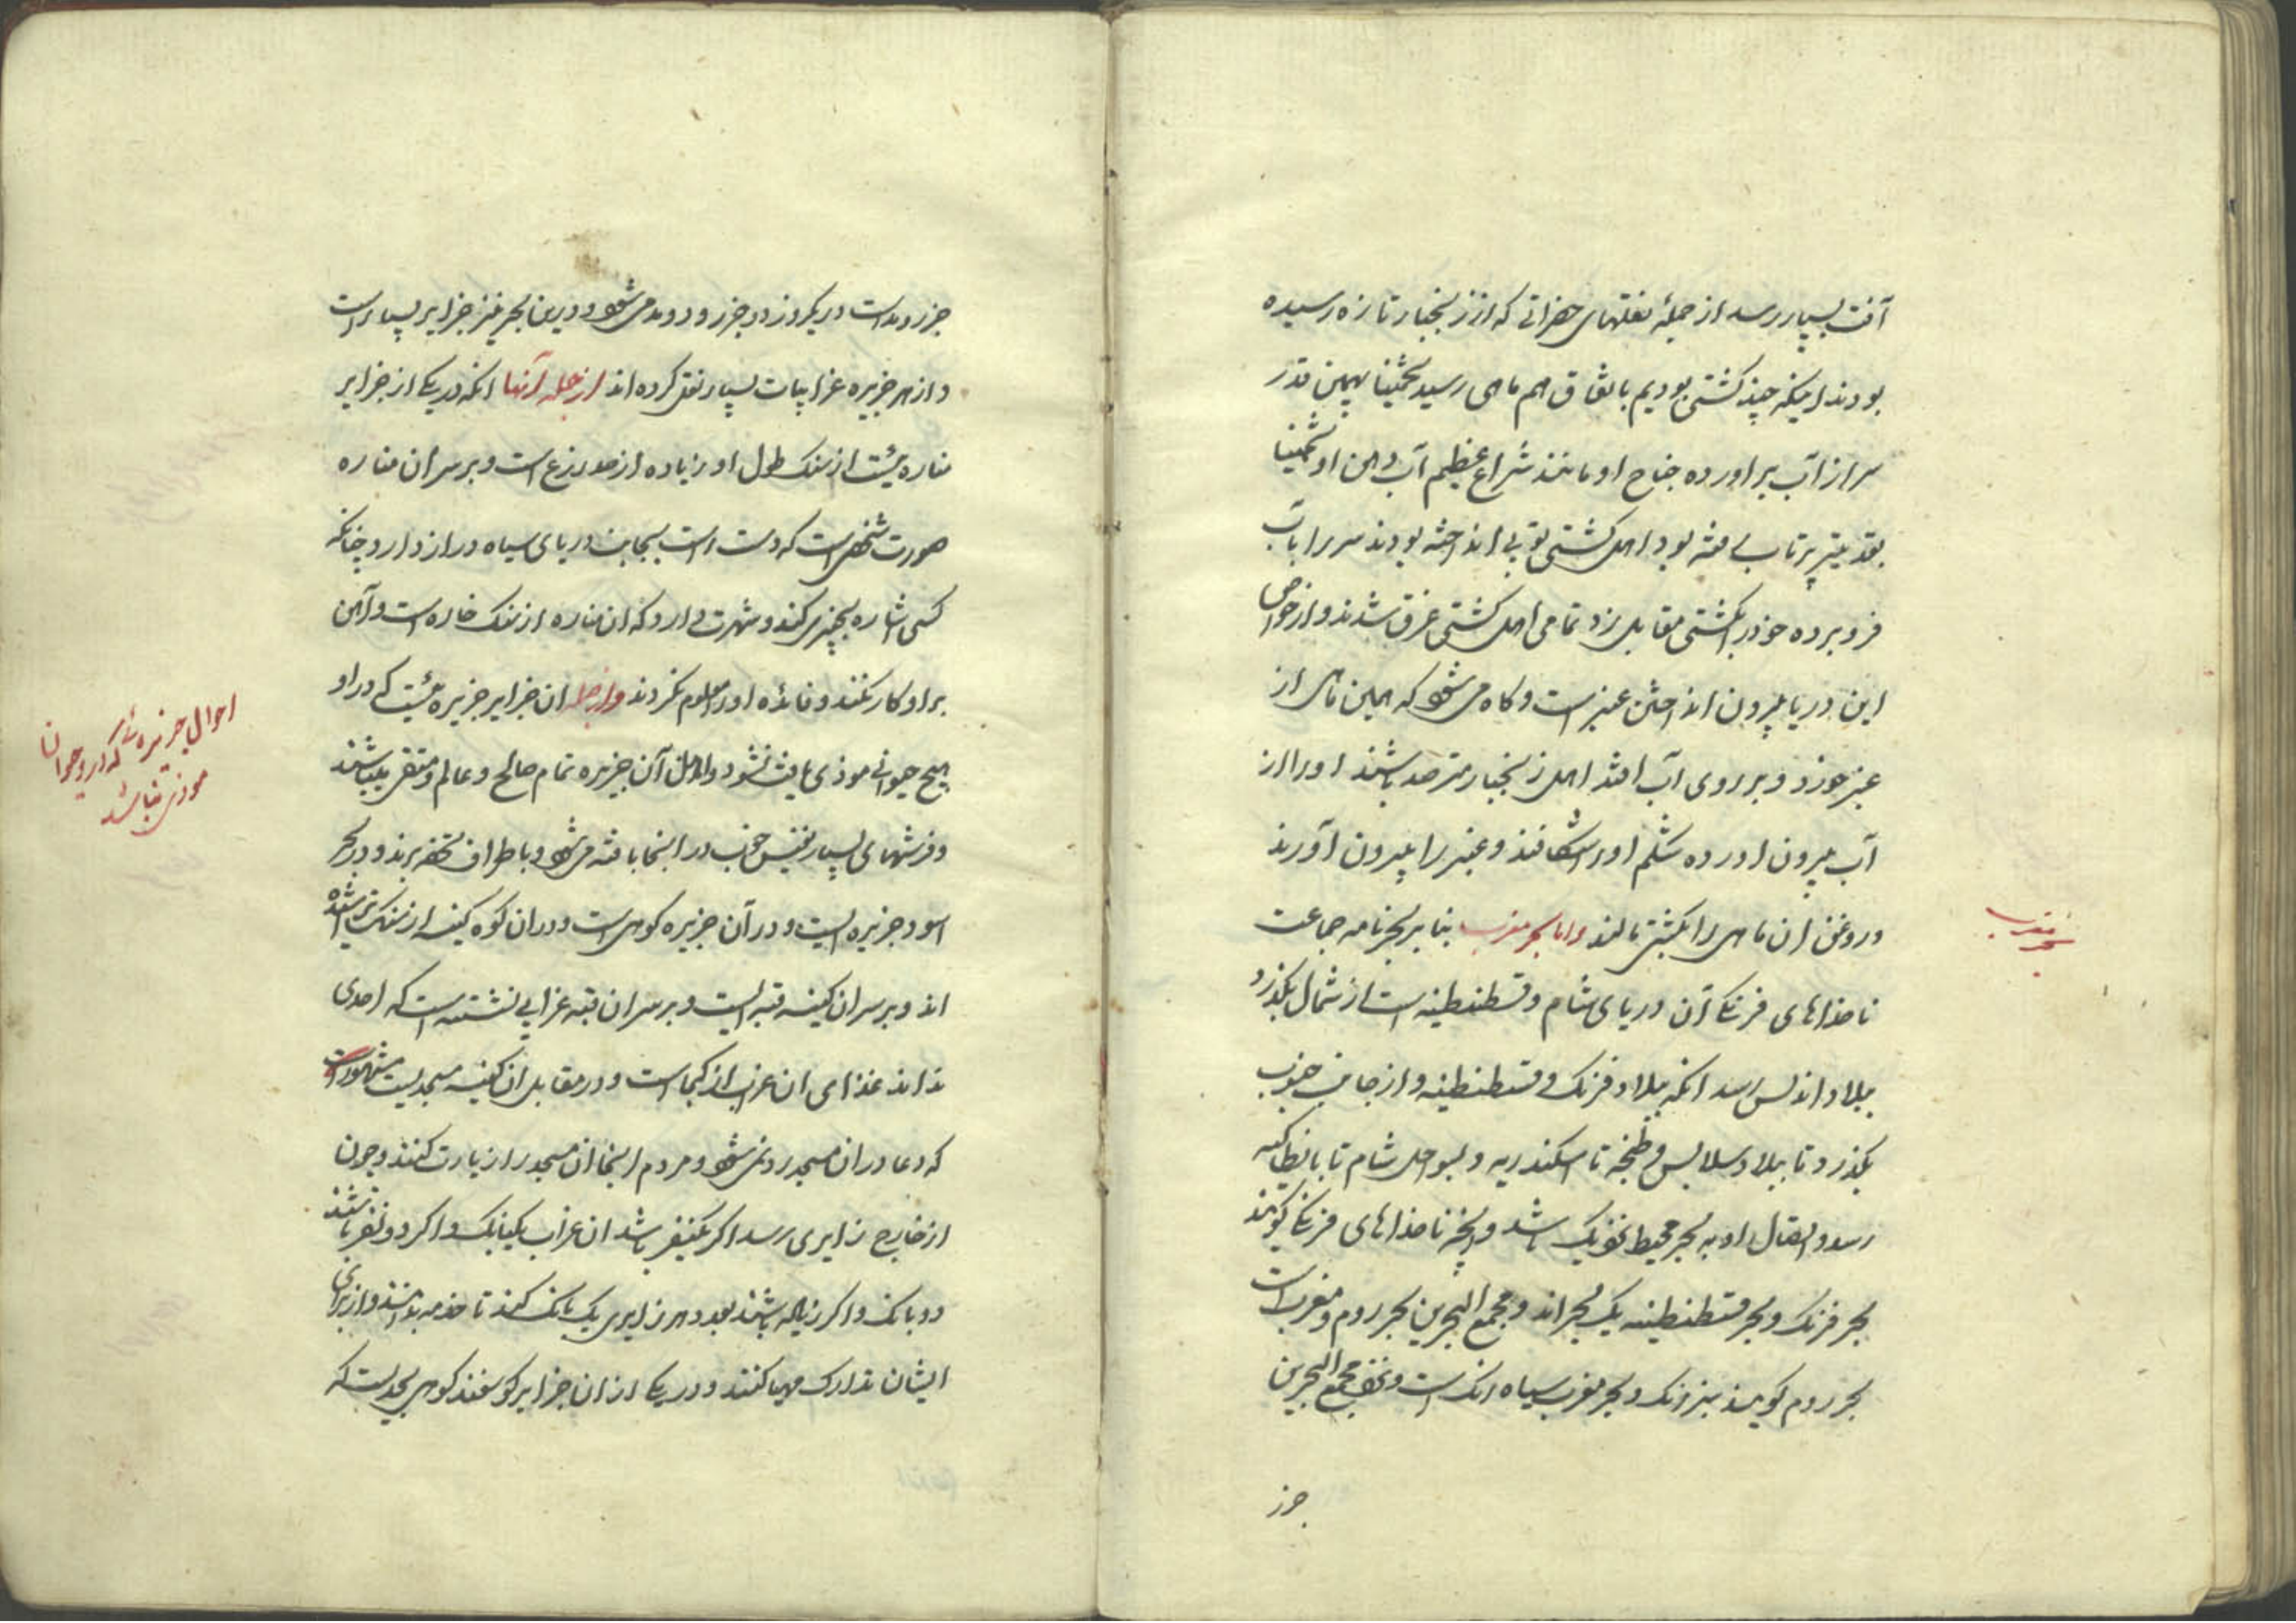 آفت بسیار رسد از جملهٔ نقلهای حضراتی که از زنجبار تازه رسیده
بودند اینکه چند کشتی بودیم باتفاق هم ماهی رسید تخمینا بهمین قدر
سر از آب براورده جناح او مانند شراع عظیم آب دهن او تخمینا
بقد تیر پرتاب رفته بود اهل کشتی توپی انداخته بودند سر را بآب
فرو برده خود را بکشتی مقابل زد تمامی اهل کشتی غرق شدند و از خواص
این دریا بیرون انداختن عنبر است و کاه می شود که همین ماهی از
عنبر خورد و بر روی آب افتد اهل زنجبار مترصد باشند او را از
آب بیرون اورده شکم او را شکافند و عنبر را بیرون آورند
و روغن ان ماهی را بکشتی مالند و اما بحر مغرب بنا بر بحرنامه جماعت
ناخداهای فرنکی آن دریای شام و قسطنطنیه است از شمال بکذرد
ببلاد اندلس رسد انکه ببلاد فرنک و قسطنطنیه و از جانب جنوب
بکذرد تا ببلاد سلابس و طنجه تا اسکندریه و بسواحل شام تا بانطاکیه
رسد و اتصال او به بحر محیط نزدیک باشد و انچه ناخداهای فرنکی کویند
بحر فرنک و بحر قسطنطنیه یک بحر اند و مجمع البحرین بحر روم و مغرب است
بحر روم کویند سبز رنک و بحر مغرب سیاه رنک است و مجمع البحرین
جزر
بحر مغرب
جزر و مد است در یکروز دو جزر و دو مد می شود و درین بحر نیز جزایر بسیار است
و از هر جزیره غرایبات بسیار نقل کرده اند از جمله آنها انکه در یکی از جزایر
مناره یئست از سنک طول او زیاده از صد ذرع است و بر سر ان مناره
صورت شخصی است که دست راست بجانب دریای سیاه دراز دارد چنانکه
کسی اشاره بچیزی کند و شهرت دارد که ان مناره از سنک خاره است و آهن
بر او کار نکند و فائده او را معلوم نکردند و از جمله ان جزایر جزیره یئست که در او
هیچ حیوانی موذی یافت نشود و اهل آن جزیره تمام صالح و عالم و متقی میباشند
و فرشهای بسیار نفیس خوب در اینجا بافته می شود و باطراف تحفه برند و در بحر
اسود جزیره ایست و در آن جزیره کوهی است و در ان کوه کنیسه از سنک تراشیده
اند و بر سر ان کنیسه قبه ایست و بر سر ان قبه غرابی نشسته است که احدی
نداند غذای ان غراب از کجاست و در مقابل ان کنیسه مسجدیست مشهور است
که دعا در ان مسجد رد نمی شود و مردم اینجا ان مسجد را زیارت کنند و چون
از خارج زایری رسد اکر یکنفر باشد ان غراب یکبانک و اکر دو نفر باشند
دو بانک و اکر زیاده باشند بعدد هر زایری یک بانک کند تا خدمه بدانند و از برای
ایشان تدارک مهیا کنند و در یکی از ان جزایر کوسفند کوهی بحدیست که
احوال جزیره ئی که در او حیوان
موذی نباشد